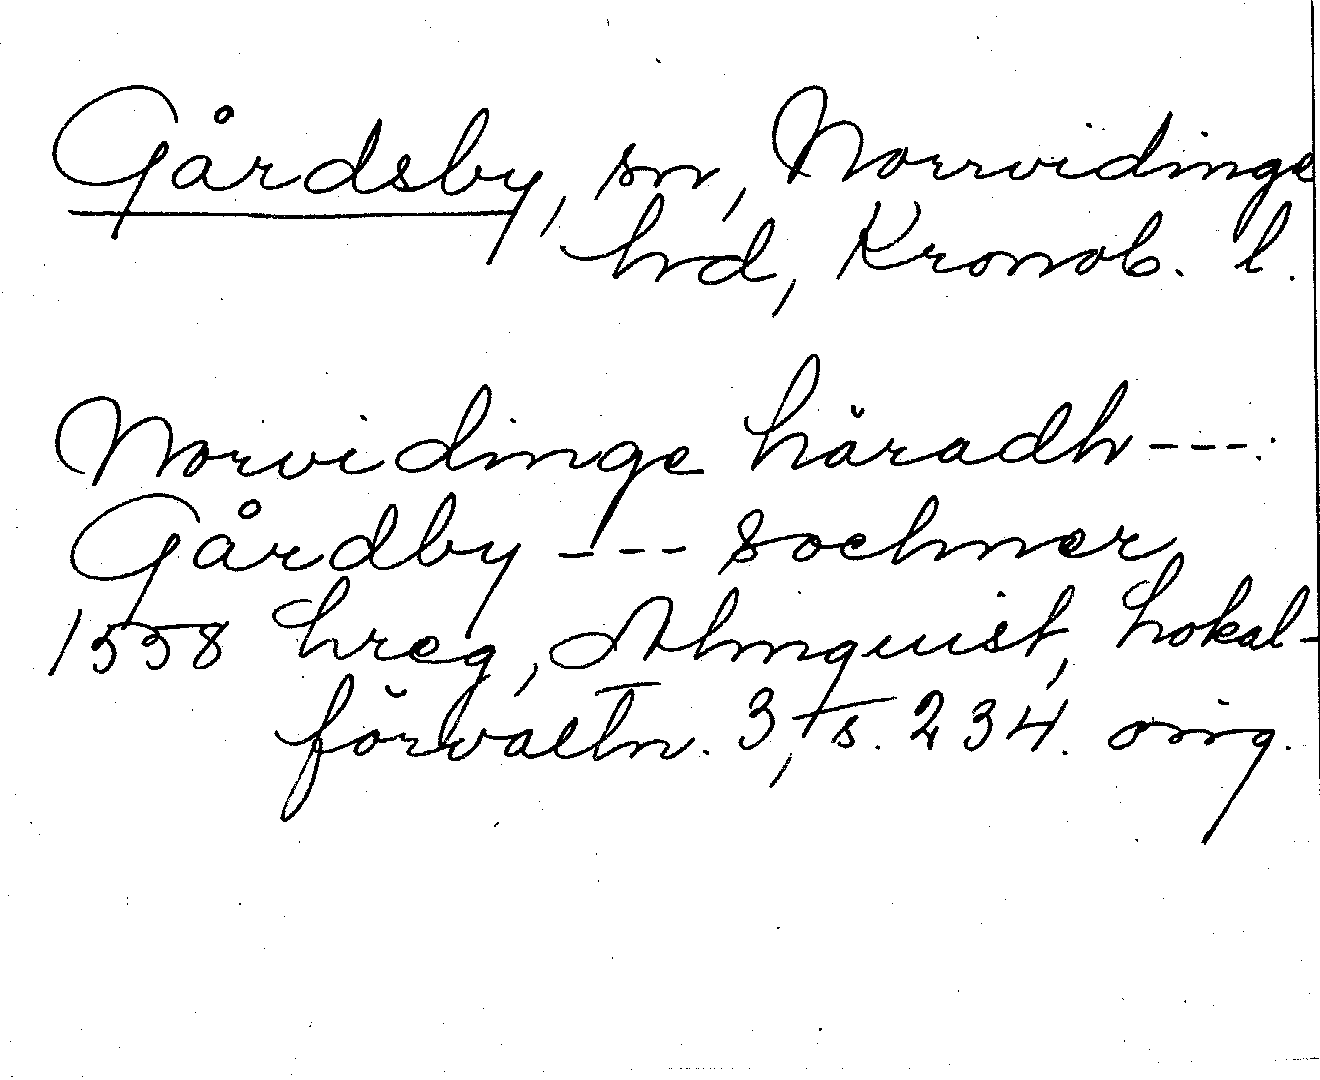 Gårdsby, sn, Norrvidinge
hd, Kronob. l.
Norvidinge häradh ---.
Gårdby --- sochner
1558 hreg, Almquist, Lokal-
förvaltn. 3, s. 234. orig.